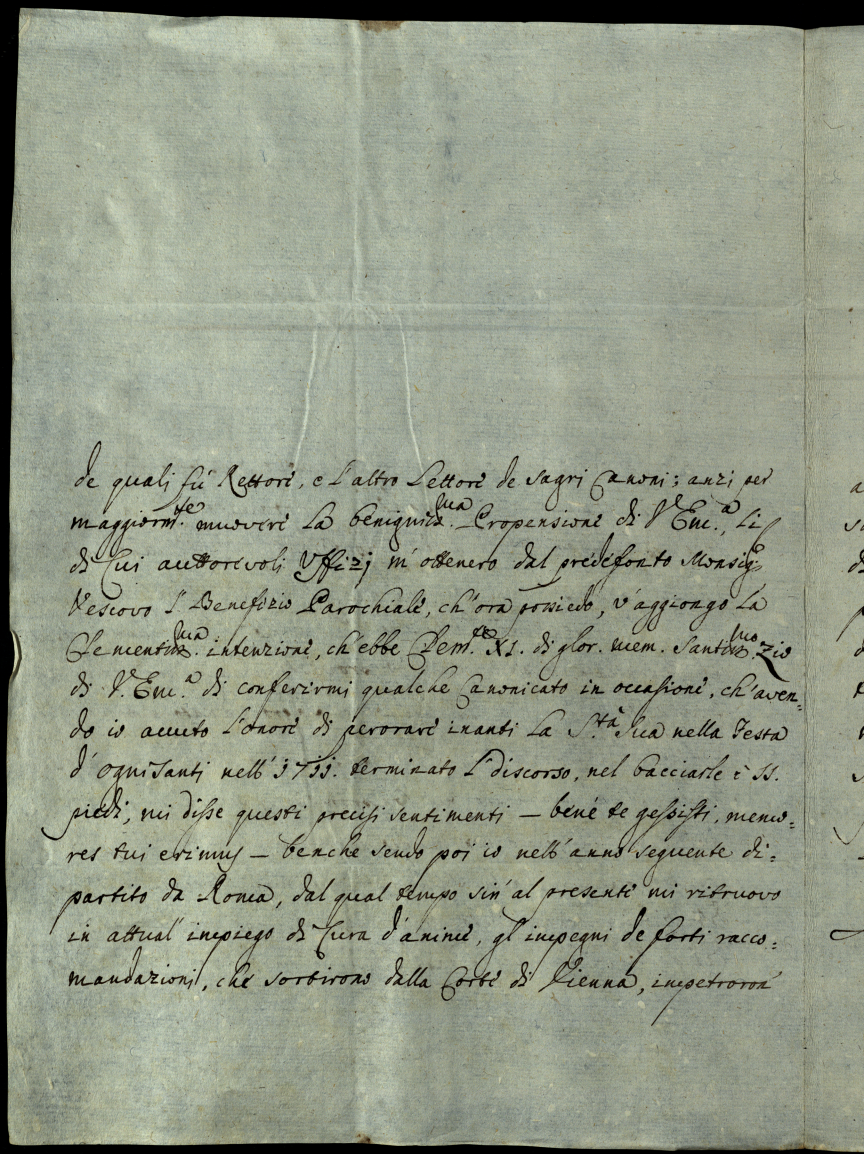 de quali fù Rettore, e l'altro Lettore de sagri Canoni; anzi per
maggiorm.te muovere la benigniss.ma Propensione di V. Em.a, li
di Cui auttorevoli Uffizj m'ottenero dal predefonto Monsig.e
Vescovo l' Benefizio Parochiale, ch'ora possiedo, v'aggiongo la
Clementiss.ma intenzione, ch'ebbe Clem.te XI. di glor. mem. Santiss.mo Zio
di V. Em.a di conferirmi qualche Canonicato in occasione, ch'aven-
do io avuto l'onore di perorare inanti la S.tà Sua nella Festa
d'ogniSanti nell' 1711. terminato l' discorso, nel bacciarle i SS.
piedi, mi disse questi precisi sentimenti – bene te gessisti, memo-
res tui erimus – benche sendo poi io nell'anno seguente di-
partito da Roma, dal qual tempo sin' al presente mi ritruovo
in attual' impiego di Cura d'anime, gl'impegni de forti racco-
mandazioni, che sortirono dalla Corte di Vienna, impetroron'